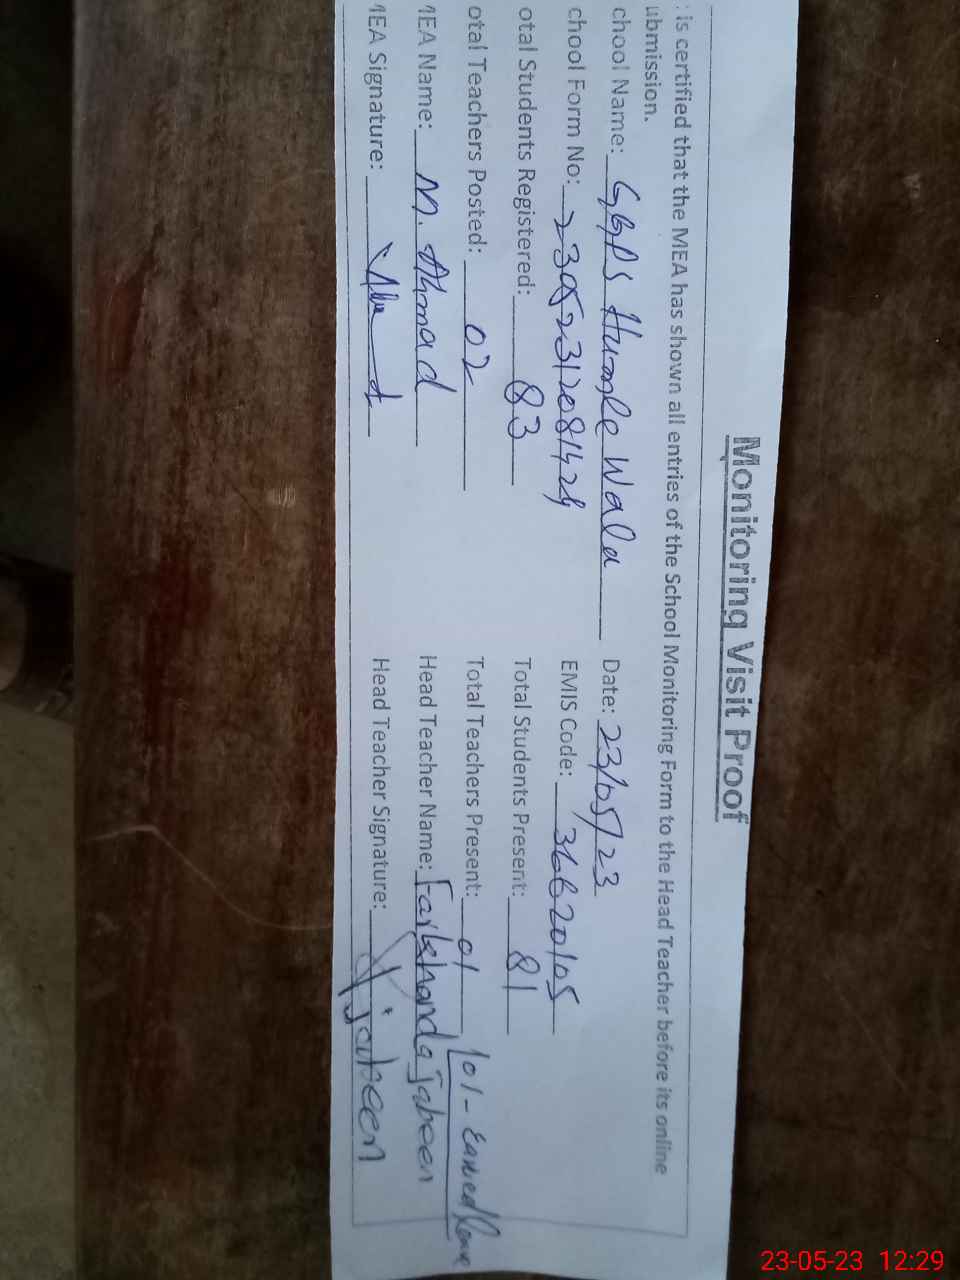 Monitoring Visit Proof
: is certified that the MEA has shown all entries of the School Monitoring Form to the Head Teacher before its online
ubmission.
chool Name: GGPS Humble Wala Date: 23/05/23
chool Form No: 23052312081424 EMIS Code: 36620105
otal Students Registered: 83 Total Students Present: 81
otal Teachers Posted: 02 Total Teachers Present: 01 01-Earned leave
MEA Name: M. Ahmad Head Teacher Name: Farkhanda jabeen
MEA Signature: Head Teacher Signature: jabeen
23-05-23 12:29